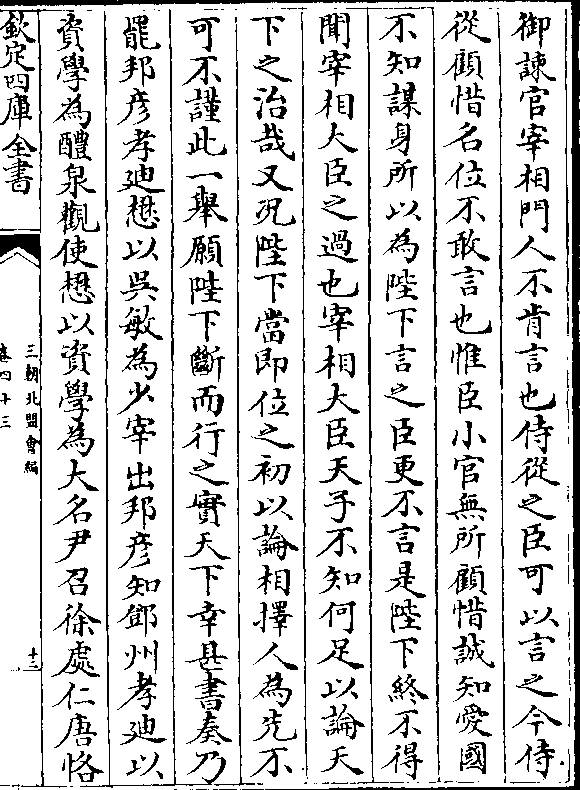 御諫官宰相門人不肯言也侍從之臣可以言之今侍
從顧惜名位不敢言也惟臣小官無所顧惜誠知愛國
不知謀身所以為陛下言之臣更不言是陛下終不得
聞宰相大臣之過也宰相大臣天子不知何足以論天
下之治哉又况陛下當即位之初以論相擇人為先不
可不謹此一舉願陛下斷而行之實天下幸甚書奏乃
罷邦彦孝迪懋以吳敏為少宰出邦彦知鄧州孝迪以
資學為醴泉觀使懋以資學為大名尹召徐處仁唐恪
欽定四庫全書
三朝北盟會編
卷四十三
十三